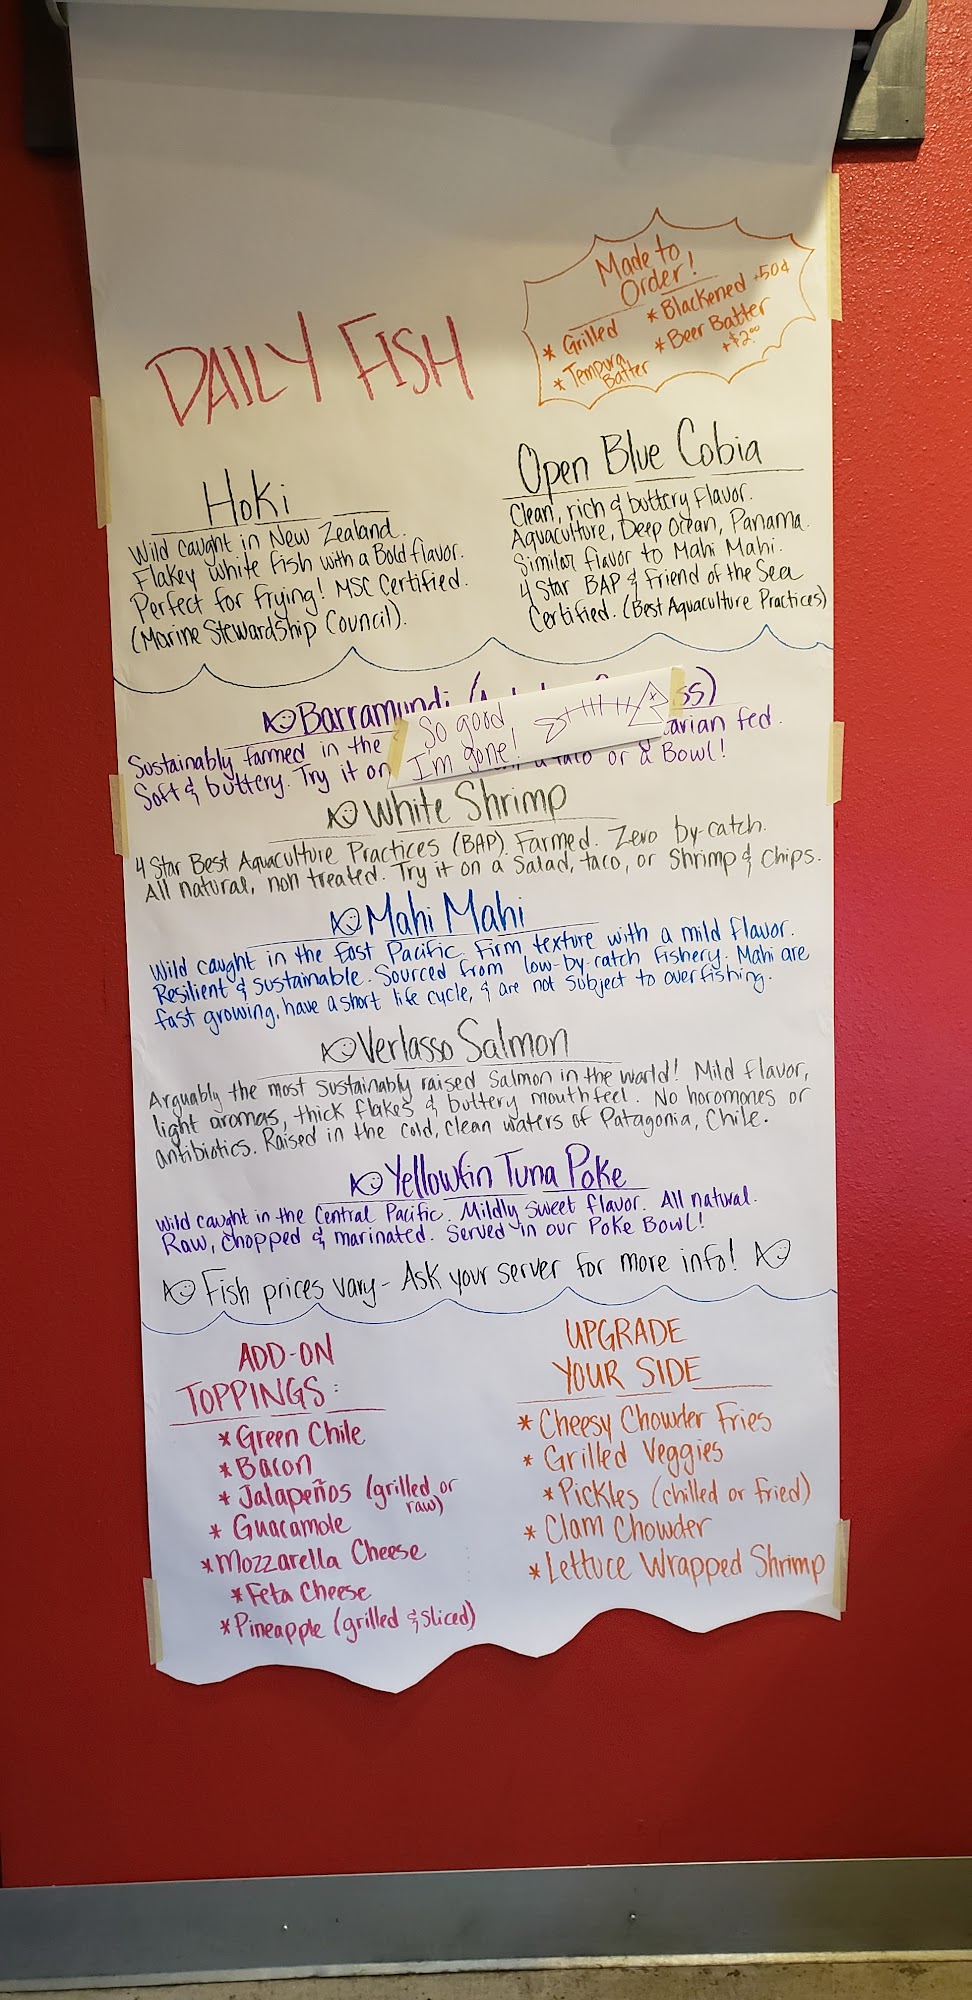 DAILY FISH
Made to
Order!
* Grilled
* Blackened +50¢
* Tempura
Batter
* Beer Batter
+$2.00
Hoki
Wild caught in New Zealand.
Flakey white fish with a Bold flavor.
Perfect for frying! MSC Certified.
(Marine Stewardship Council).
Open Blue Cobia
Clean, rich & buttery flavor.
Aquaculture, Deep Ocean, Panama.
Similar flavor to Mahi Mahi.
4 Star BAP & Friend of the Sea
Certified. (Best Aquaculture Practices)
Barramundi
Sustainably farmed in the fed.
Soft & buttery. Try it on a taco or a Bowl!
So good
I'm gone!
White Shrimp
4 Star Best Aquaculture Practices (BAP). Farmed. Zero by-catch.
All natural, non treated. Try it on a Salad, taco, or Shrimp & Chips.
Mahi Mahi
Wild caught in the East Pacific. Firm texture with a mild flavor.
Resilient & sustainable. Sourced from low-by-catch fishery. Mahi are
fast growing, have a short life cycle, & are not subject to overfishing.
Verlasso Salmon
Arguably the most sustainably raised Salmon in the world! Mild flavor,
light aromas, thick flakes & buttery mouthfeel. No horomones or
antibiotics. Raised in the cold, clean waters of Patagonia, Chile.
Yellowfin Tuna Poke
Wild caught in the Central Pacific. Mildly sweet flavor. All natural.
Raw, chopped & marinated. Served in our Poke Bowl!
Fish prices vary - Ask your server for more info!
ADD-ON
TOPPINGS:
* Green Chile
* Bacon
* Jalapeños (grilled or
raw)
* Guacamole
* Mozzarella Cheese
* Feta Cheese
* Pineapple (grilled & sliced)
UPGRADE
YOUR SIDE
* Cheesy Chowder Fries
* Grilled Veggies
* Pickles (chilled or fried)
* Clam Chowder
* Lettuce Wrapped Shrimp